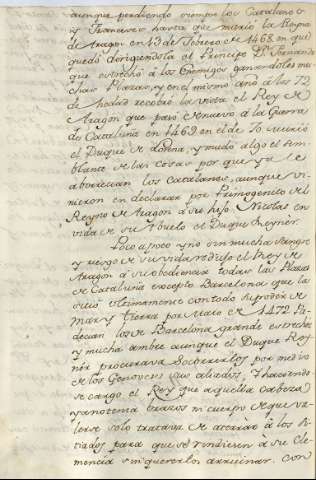 aunque perdiendo siempre los Catalanes
y Franceses hasta que murió la Reyna
de Aragon en 13 de Febrero de 1468. en que
quedó dirigiendola el Principe Dn. Fernando
que estrechó á los Enemigos ganandoles mu
chas Plazas, y en el mismo año á los 72
de hedad recobró la vista el Rey de
Aragon que pasó de nuevo á la Guerra
de Cataluña en 1469 en el de 70 murió
el Duque de Lorena, y mudó algo el sem
blante de las cosas por que ya le
aborrecian los Catalanes, aunque vi
nieron en declarar por Primogenito del
Reyno de Aragon á su hijo Nicolas en
vida de su Abuelo el Duque Reyner.
Poco a poco y no sin mucha sangre
y riesgo de su vida redujo el Rey de
Aragon á su obediencia todas las Plazas
de Cataluña excepto Barcelona que la
sitió ultimamente con todo su poder de
Mar y tierra por Marzo de 1472 Pa
decian los de Barcelona grande estrechez
y mucha ambre aunque el Duque Rey
ner procurava Socorrerlos por medio
de los Genoveses sus aliados, y haciendo
se cargo el Rey que aquella cabeza
ya no tenia brazos ni cuerpo de que va
lerse solo tratava de atraer á los Si
tiados para que se rindiesen á su Cle
mencia sin quererlos arruinar. con